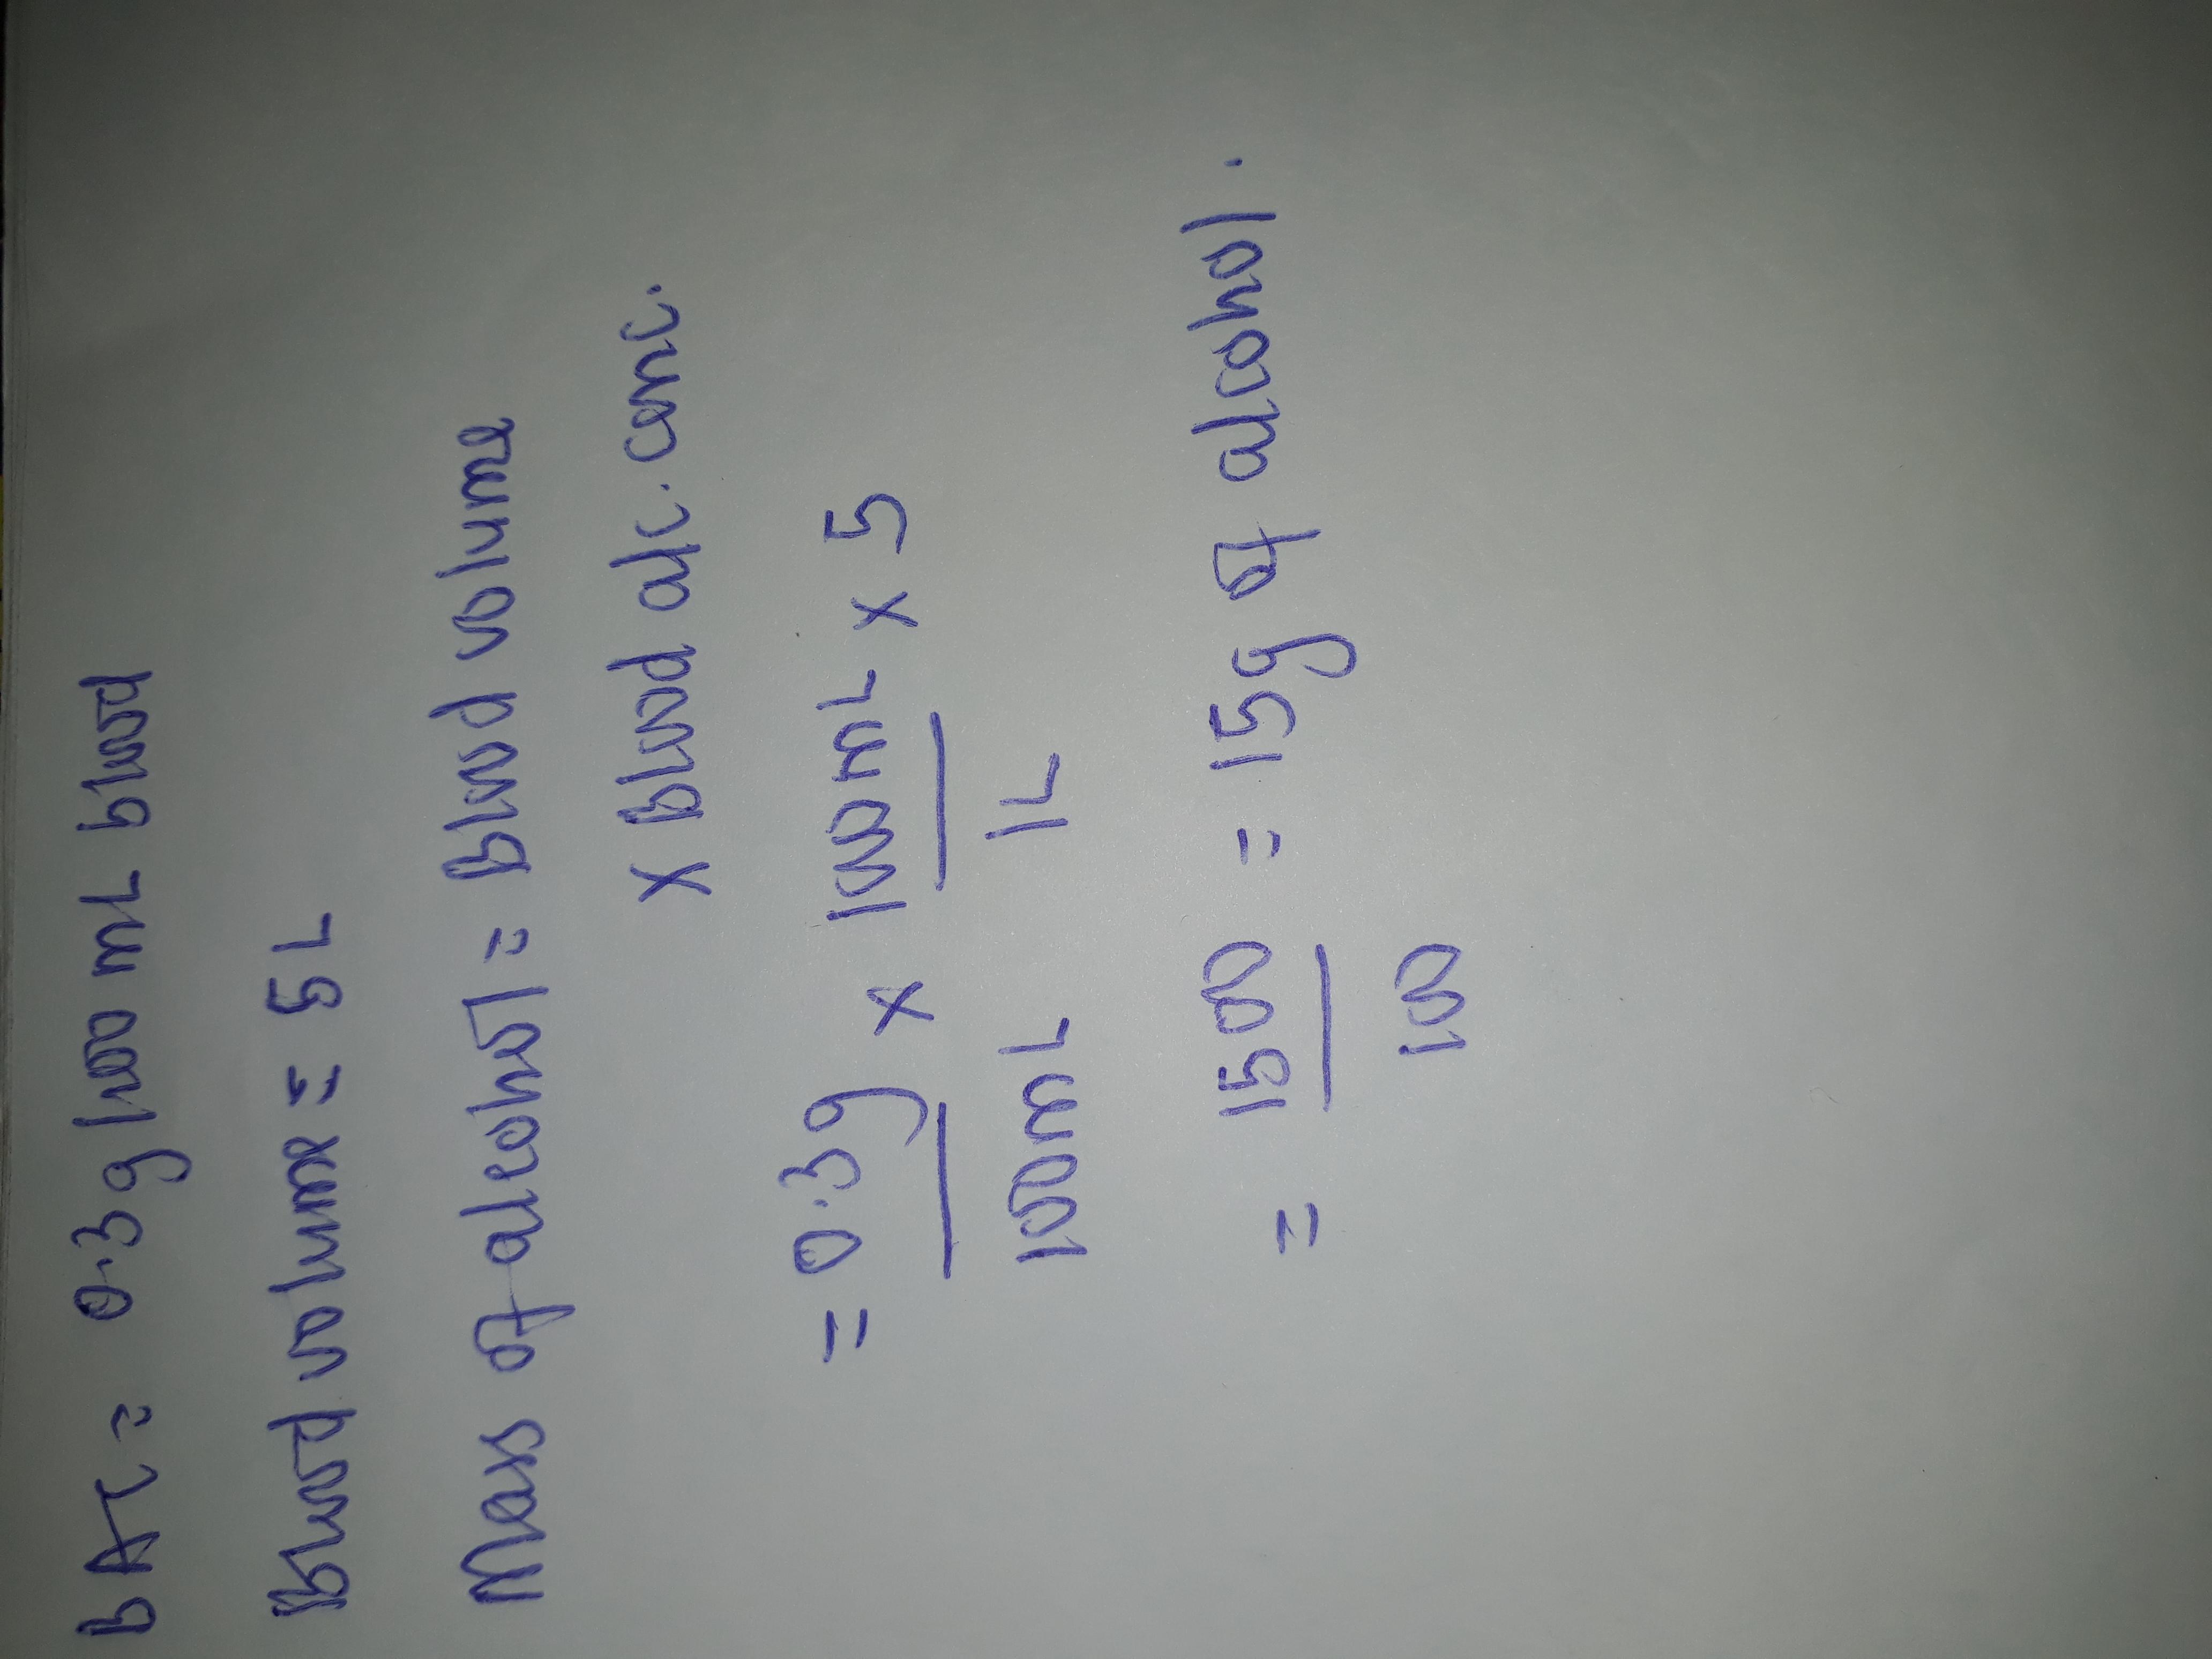 BAC = 0.3 g/100 mL blood
Blood volume = 5 L
Mass of alcohol = Blood volume
x Blood alc. conc.
= 0.3g x 1000mL x 5
100mL 1L
= 1500 = 15g of alcohol.
100